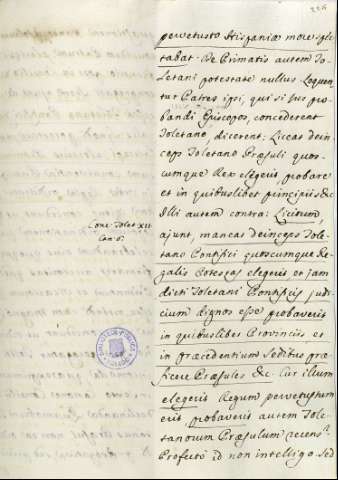 226
pervetusto Hispaniæ more spec-
tabat. De Primatis autem To-
letani potestate nullus. Loquen-
tur Patres ipsi, qui si jus pro-
bandi Episcopos, concederent
Toletano, dicerent: Liceat dein-
ceps Toletano Præsuli quos-
cumque Rex elegerit, probare
et in quibuslibet principiis &c
Illi autem contra: Licitum,
ajunt, maneat deinceps Tole-
tano Pontifici quoscumque Re-
galis Potestas elegerit et jam
dicti Toletani Pontificis judi-
cium dignos esse probaverit
in quibuslibet Provinciis et
in præcedentium Sedibus præ-
ficere Præsules &c. Cur illum
elegerit Regum pervetustum
erit, probaverit autem Tole-
tanorum Præsulum recens?
Profecto id non intelligo. Sed
Conc. Tolet. XII.
Can. 6.